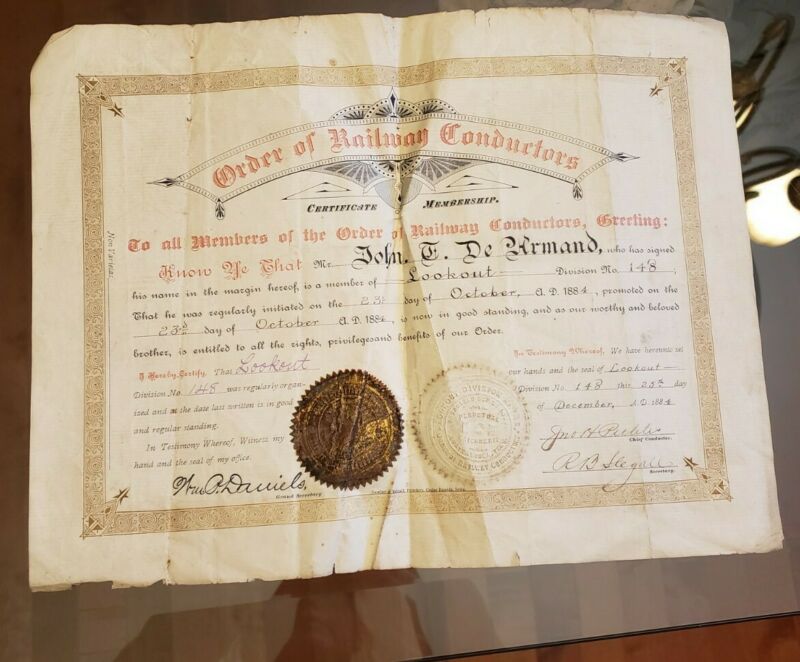 Order of Railway Conductors
Certificate Membership.
To all Members of the Order of Railway Conductors, Greeting:
Know Ye That Mr. John. T. De Armand, who has signed
his name in the margin hereof, is a member of Lookout Division No. 148,
That he was regularly initiated on the 23rd day of October, A.D. 1884, promoted on the
23rd day of October A.D. 1884, is now in good standing, and as our worthy and beloved
brother, is entitled to all the rights, privilegesand benefits of our Order.
I Hereby Certify, That Lookout
Division No. 148 was regularly organ-
ized and at the date last written is in good
and regular standing.
In Testimony Whereof, Witness my
hand and the seal of my office.
Wm. P. Daniels,
Grand Secretary.
In Testimony Whereof, We have hereunto set
our hands and the seal of Lookout
Division No. 148 this 25th day
of December, A.D. 1884
Jno H
Chief Conductor.
R B Stegall
Secretary.
PERPETUAL